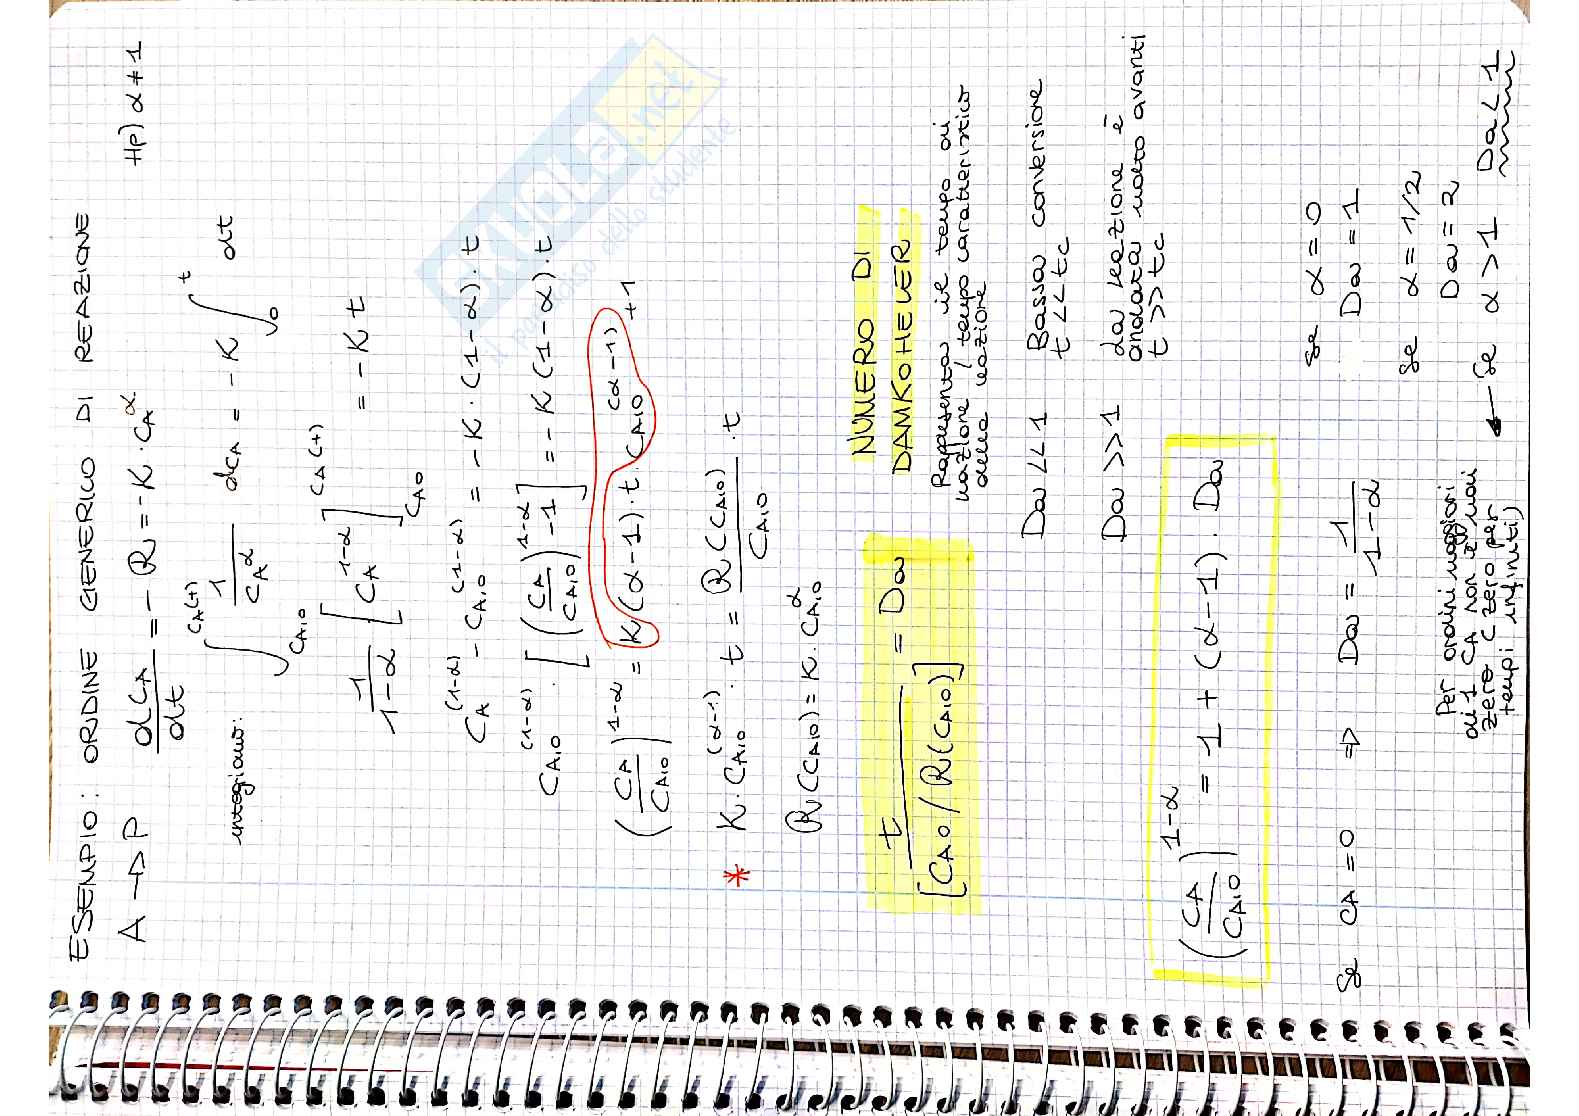 ESEMPIO: ORDINE GENERICO DI REAZIONE
A → P dC_A/dt = -R = -K·C_A^α Hp) α≠1
integriamo: ∫_{C_A,0}^{C_A(t)} 1/C_A^α dC_A = -K ∫_0^t dt
1/(1-α) [C_A^{1-α}]_{C_A0}^{C_A(t)} = -Kt
C_A^{(1-α)} - C_{A,0}^{(1-α)} = -K·(1-α)·t
C_{A,0}^{(1-α)} · [(C_A/C_{A,0})^{1-α} -1] = -K(1-α)·t
(C_A/C_{A,0})^{1-α} = K(α-1)·t·C_{A,0}^{(α-1)} +1
* K·C_{A,0}^{(α-1)}·t = R(C_{A,0})/C_{A,0}·t
R(C_{A,0}) = K·C_{A,0}^α
t/[C_{A,0}/R(C_{A,0})] = Da NUMERO DI
DAMKOHELER
Rappresenta il tempo di
reazione / tempo caratteristico
della reazione
Da<<1 Bassa conversione
t<<tc
Da>>1 La reazione è
andata molto avanti
t>>tc
(C_A/C_{A,0})^{1-α} = 1+(α-1)·Da
Se C_A=0 ⇒ Da = 1/(1-α)
Se α=0
Da=1
Se α=1/2
Da=2
← Se α>1 Da<1
Per ordini maggiori
di 1 C_A non è mai
zero (zero per
tempi infiniti)
SKUOLA.net
il paradiso dello studente